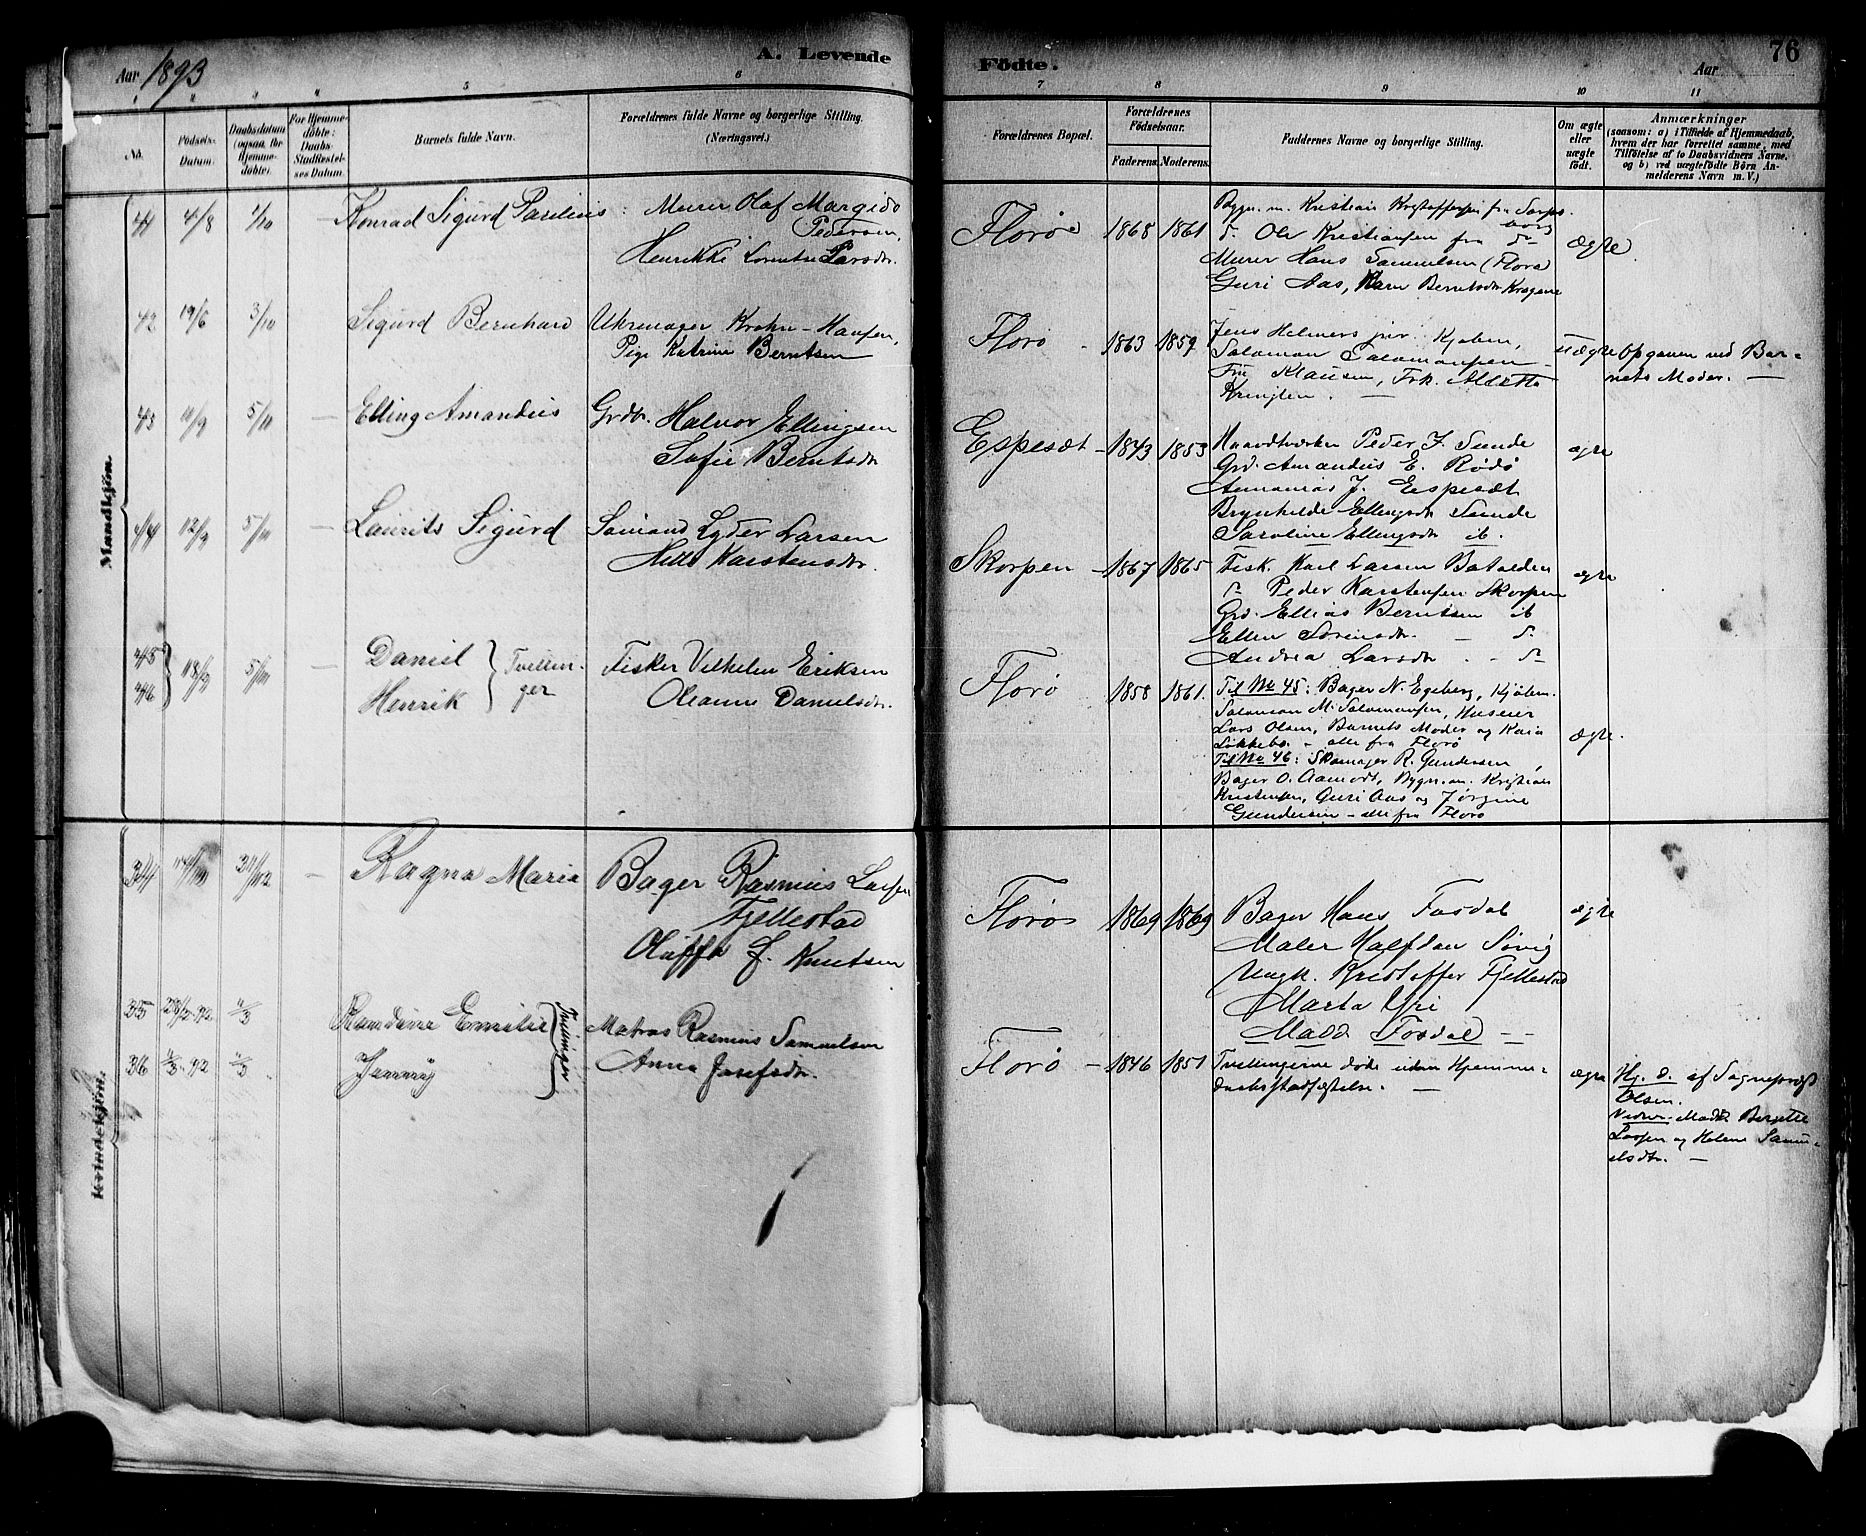 Aar 1893
A. Levende Födte.
76
Aar
5 6 7 8 9 10 11
No.
Födsels-Datum.
Daabsdatum (ogsaa for Hjemme-döbte).
For Hjemme-döbte: Daabs-Stadfæstel-ses Datum.
Barnets fulde Navn.
Forældrenes fulde Navne og borgerlige Stilling. (Næringsvei.)
Forældrenes Bopæl.
Forældrenes Födselsaar.
Faderens. Moderens.
Faddernes Navne og borgerlige Stilling.
Om ægte eller uægte født.
Anmærkninger
(saasom: a) i Tilfælde af Hjemmedaab, hvem der har forrettet samme, med Tilföielse af to Daabsvidners Navne, og b) ved uægtefödte Börn An-melderens Navn m. V.)
Mandkjön.
41 4/8 1/10 — Konrad Sigurd Paselius : Murer Olaf Margido
Pedersen,
Henrikke Lovntse Larsdtr.
Florø 1868 1861
Bygn. m. Kristian Kristoffersen fra Sarps-
borg
d. Ole Kristiansen fra do
Murer Hans Samuelsen (Florø
Guri Aas, Karn Berntsdtr Kragane
Ægte
42 19/6 3/10 Sigurd Bernhard Uhrmager Krohn-Hansen,
Pige Katrine Berntsen
Florø - 1863 1859
Jens Helmers jnr. Kjøbm,
Salamon Salamonsen
Fru Klausen, Frk. Aletta
Kringlen. —
uægte Opgaven ved Bar-
nets Moder. —
43 11/9 5/11 — Elling Amandus Grdbr. Halvor Ellingsen
Sofie Berntsdtr
Espesæt - 1843 1853
Haandtverker Peder J. Sunde
Grd. Amandus E. Rødø
Ananias J. Espesæt
Brynhilde Ellingsdtr Sunde
Saroline Ellingsdtr ib.
ægte
44 12/9 5/11 — Laurits Sigurd Sømand Lyder Larsen
Hille Karstensdtr.
Skorpen - 1867 1865
Fisk. Karl Larsen Batalden
do Peder Karstensen Skorpen
Grd. Ellias Berntsen ib
Ellen Sørensdtr. — do
Andrea Larsdtr. - do
ægte
45
46 } 18/9 5/11 — Daniel
Henrik } Tvillin-
ger
Fisker Vilhelm Eriksen
Oleanne Danielsdtr.
Florø 1858 1861.
Til No 45: Bager N. Egeberg, Kjøbm.
Salamon M. Salamonsen, Huseier
Lars Olsen, Barnets Moder og Kaia
Løkkebø - alle fra Florø
Til No 46: Skomager R. Gundersen,
Bager O. Aamodt, Bygn.m. Kristian
Kristensen, Guri Aas og Jørgine
Gundersen - alle fra Florø
ægte.
Kvindekjön.
34 — Ragna Maria Bager Rasmus Larsen
Fjellestad
Oluffa J. Knutsen
Florø 1869 1869
Bager Hans Fosdal
Maler Halfdan Søvig
Ungk. Kristoffer Fjellestad
Marta Yri
Madd Fosdal — -
ægte
35 28/2 92 4/3 Randine Emilie
36 4/3 92 4/3 Jenny
Tvillinger
Matros Rasmus Samuelsen
Anna Josefsdtr.
Florø - 1846 1851
Tvillingerne døde uden Hjemme-
daabsstadfæstelse. —
ægte
Hj. d. af Sogneprest
Olsen.
Vidner. Madd. Bergitte
Larsen og Helene Samu-
elsdtr. —